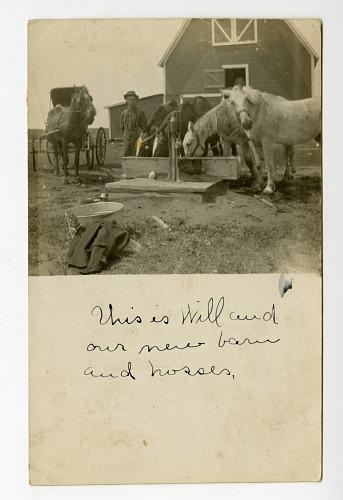 This is Will and
our new barn
and hosses.